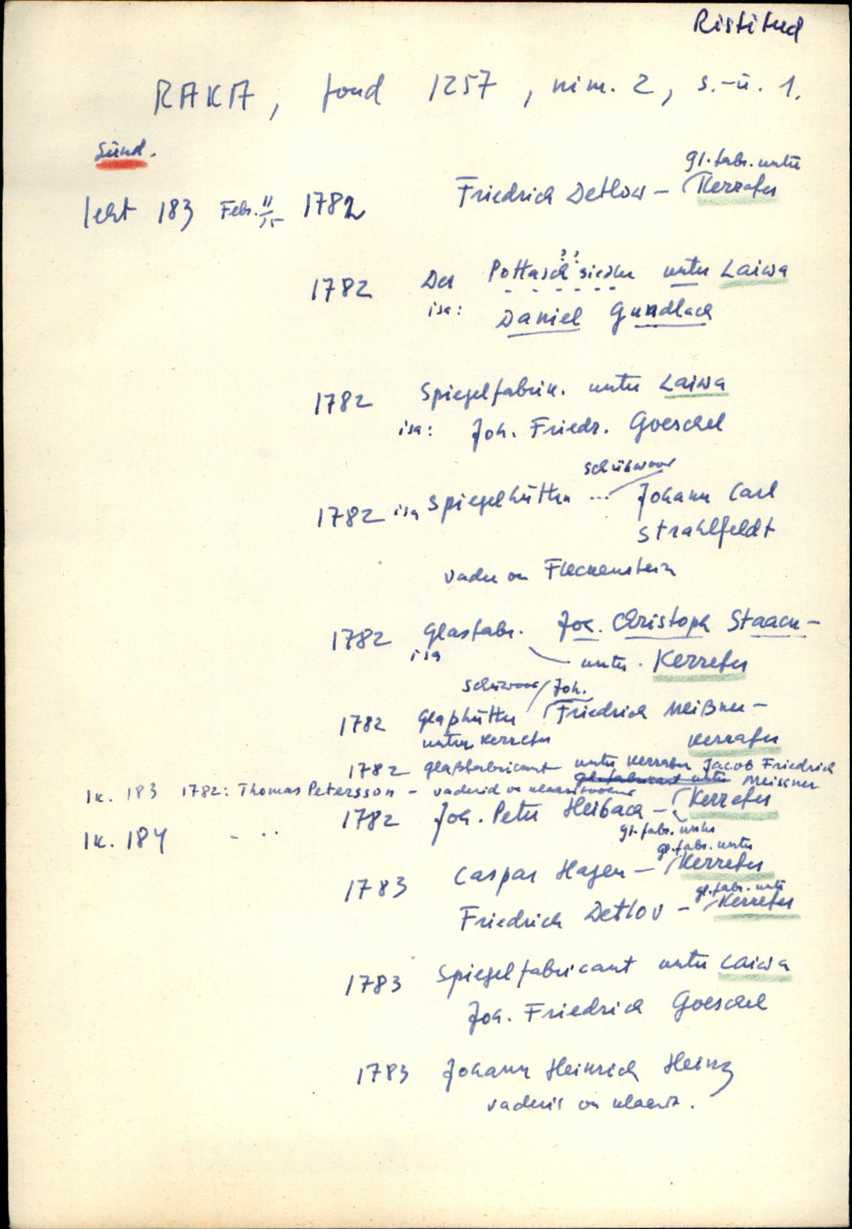 Ristitud
RAKA, fond 1257, nim. 2, s.-ü. 1.
Sünd.
gl. fabr. unter
leht 183 Febr. 11/15 1782 Friedrich Detlow – Kerrafer
1782 Der Pottasch?? sieder unter Laiwa
isa: Daniel Gundlach
1782 Spiegelfabrik. unter Laiwa
isa: Joh. Friedr. Goeschel
1782 isa Spiegelhütten ... Johann Carl
Strahlfeldt
vader on Fleckenstein
1782 Glasfabr. Joh. Christoph Staacke –
isa unter Kerrefer
Joh.
1782 Glaßhütte Friedrich Meißner –
unter Kerrefer Kerrafer
1782 glaßfabricant unter Kerrafer Jacob Friedrich
Meissner
lk. 183 1782: Thomas Petersson – vaderid on
1782 Joh. Peter Heibach – Kerrefer
gl. fabr. unter
lk. 184 - ··
gl. fabr. unter
1783 Caspar Hagen – Kerrefer
gl. fabr. unter
Friedrich Detlov – Kerrefer
1783 Spiegelfabricant unter Laiwa
Joh. Friedrich Goeschel
1783 Johann Heinrich Heinz
vaderis on klaasm.